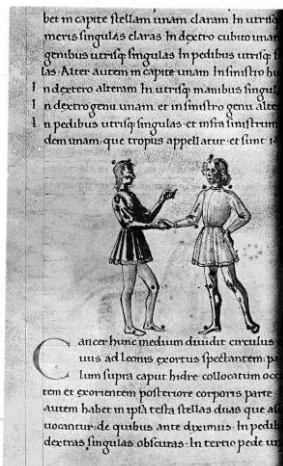 bet in capite stellam unam claram. In utrisq
meris singulas claras. In dextro cubito unam
genibus utrisq singulas. In pedibus utrisq
las. Alter autem in capite unam. In sinistro hu
In dextero alteram. In utrisq manibus singul
In dextro genu unam. et in sinistro genu alte
In pedibus utrisq singulas. et infra sinistrum
dem unam. que tropus appellatur. et sunt
Cancer hunc medium diuidit circulus
uus ad leonis exortus spectantem. pa
lum supra caput hidre collocatum occ
tem et exorientem posteriore corporis parte.
autem habet in ipsa testa stellas duas que as
uocantur. de quibus ante diximus. In pedib
dextras singulas obscuras. In tertio pede un